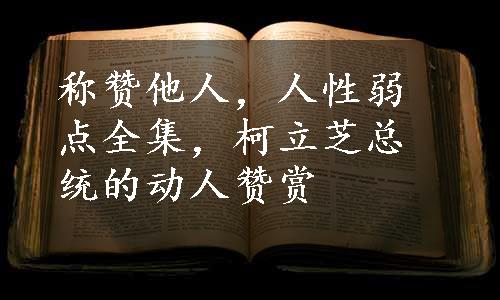 称赞他人，人性弱
点全集，柯立芝总
统的动人赞赏